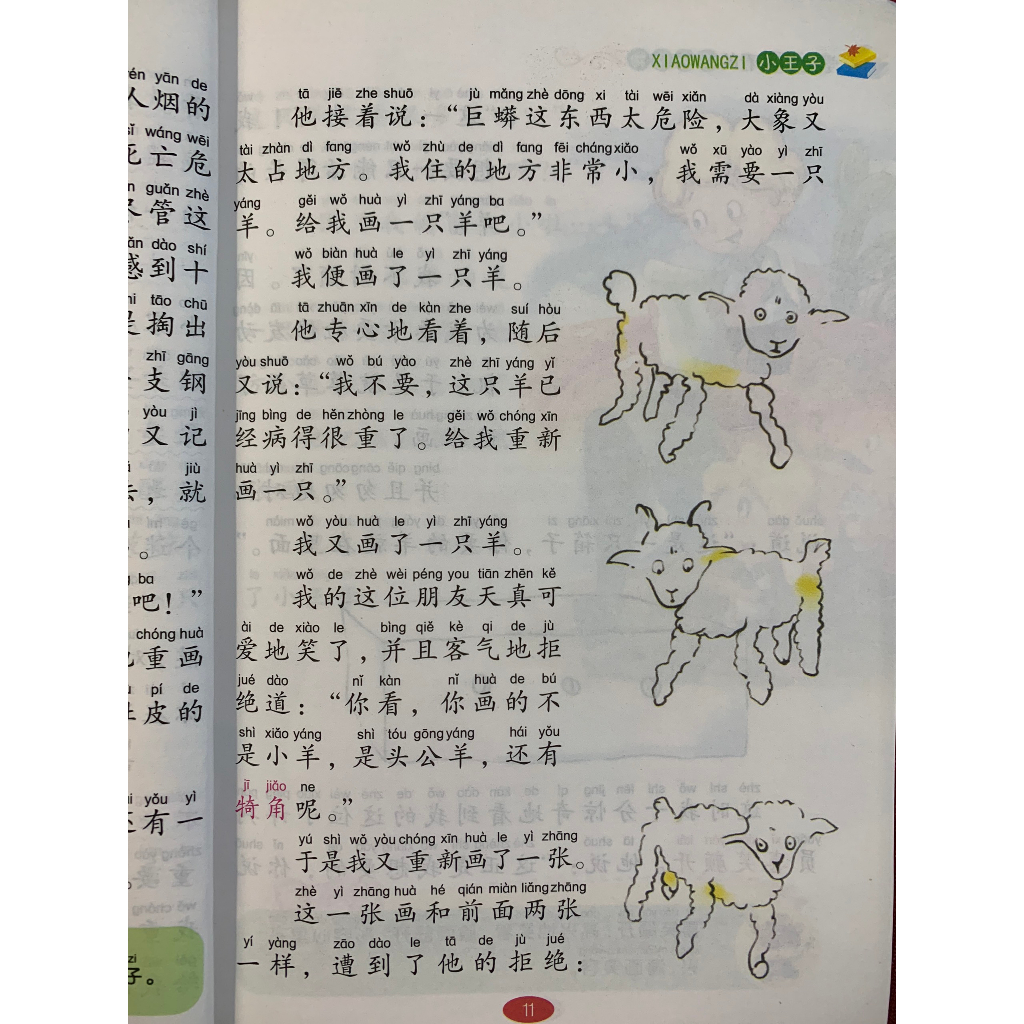 XIAOWANGZI 小王子
tā jiē zhe shuō jù mǎng zhè dōng xi tài wēi xiǎn dà xiàng yòu
他接着说：“巨蟒这东西太危险，大象又
tài zhàn dì fang wǒ zhù de dì fang fēi cháng xiǎo wǒ xū yào yì zhī
太占地方。我住的地方非常小，我需要一只
yáng gěi wǒ huà yì zhī yáng ba
羊。给我画一只羊吧。”
wǒ biàn huà le yì zhī yáng
我便画了一只羊。
tā zhuān xīn de kàn zhe suí hòu
他专心地看着，随后
yòu shuō wǒ bú yào zhè zhī yáng yǐ
又说：“我不要，这只羊已
jīng bìng de hěn zhòng le gěi wǒ chóng xīn
经病得很重了。给我重新
huà yì zhī
画一只。”
wǒ yòu huà le yì zhī yáng
我又画了一只羊。
wǒ de zhè wèi péng you tiān zhēn kě
我的这位朋友天真可
ài de xiào le bìng qiě kè qi de jù
爱地笑了，并且客气地拒
jué dào nǐ kàn nǐ huà de bú
绝道：“你看，你画的不
shì xiǎo yáng shì tóu gōng yáng hái yǒu
是小羊，是头公羊，还有
jī jiǎo ne
犄角呢。”
yú shì wǒ yòu chóng xīn huà le yì zhāng
于是我又重新画了一张。
zhè yì zhāng huà hé qián miàn liǎng zhāng
这一张画和前面两张
yí yàng zāo dào le tā de jù jué
一样，遭到了他的拒绝：
11
yān de
人烟的
wáng wēi
死亡危
guǎn zhè
尽管这
dào shí
感到十
tāo chū
是掏出
zhī gāng
支钢
yòu jì
又记
jiù
，就
。
ba
吧！”
chóng huà
重画
pí de
皮的
yǒu yì
还有一
。
zi
子。